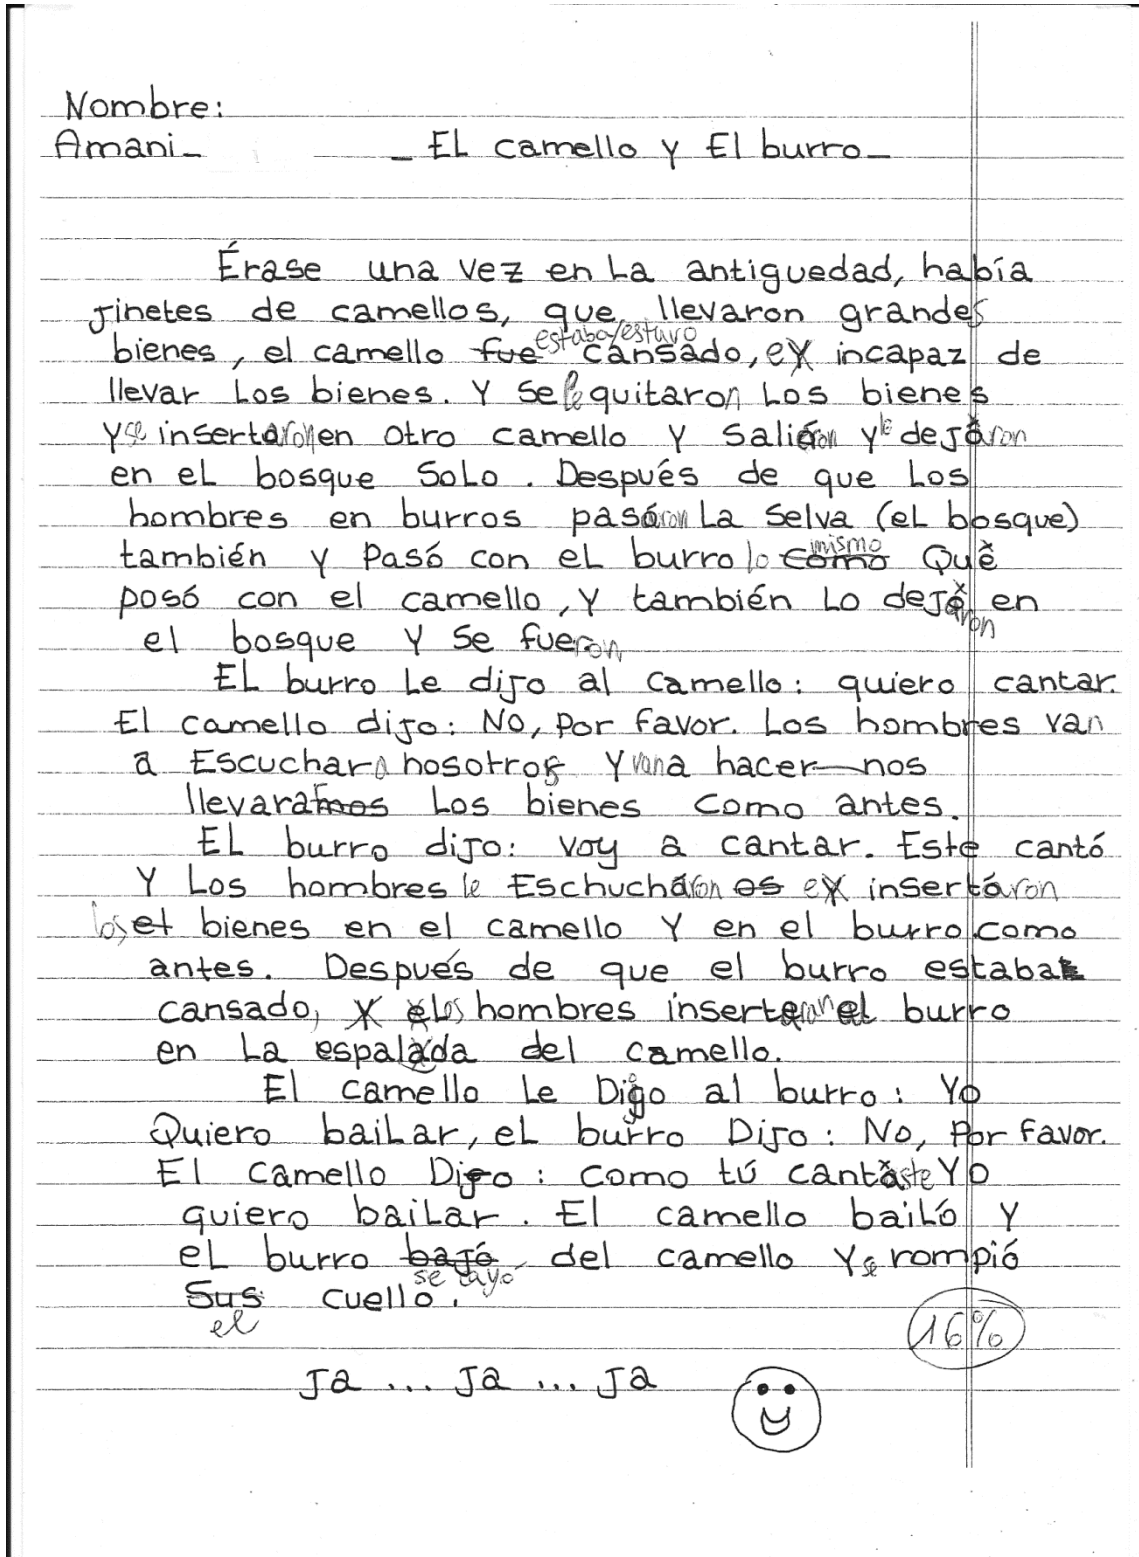 Nombre:
Amani_ _ EL camello y El burro_
Érase una vez en La antiguedad, había
jinetes de camellos, que llevaron grandes
estaba/estuvo
bienes, el camello fue cansado, ey incapaz de
llevar Los bienes. Y se le quitaron Los bienes
y se insertaron en otro camello y salieron y le dejaron
en eL bosque SoLo. Después de que Los
hombres en burros pasaron La selva (eL bosque)
mismo
también y Pasó con eL burro lo como Que
posó con el camello, y también Lo dejaron en
el bosque y se fueron
EL burro Le dijo al camello: quiero cantar.
El camello dijo: No, por favor. Los hombres van
a Escuchar a nosotros y van a hacer-nos
llevaramos Los bienes como antes.
EL burro dijo: voy a cantar. Este cantó
Y Los hombres le Eschucharon os ey insertaron
los el bienes en el camello y en el burro como
antes. Después de que el burro estaba
cansado, y el los hombres insertaron el burro
en La espalada del camello.
El camello Le Digo al burro: Yo
Quiero baiLar, eL burro Dijo: No, por favor.
El camello Dijo: como tú cantaste Yo
quiero baiLar. El camello baiLó y
eL burro bajó del camello y se rompió
se cayó
Sus cuello.
el
16%
Ja ... Ja ... Ja